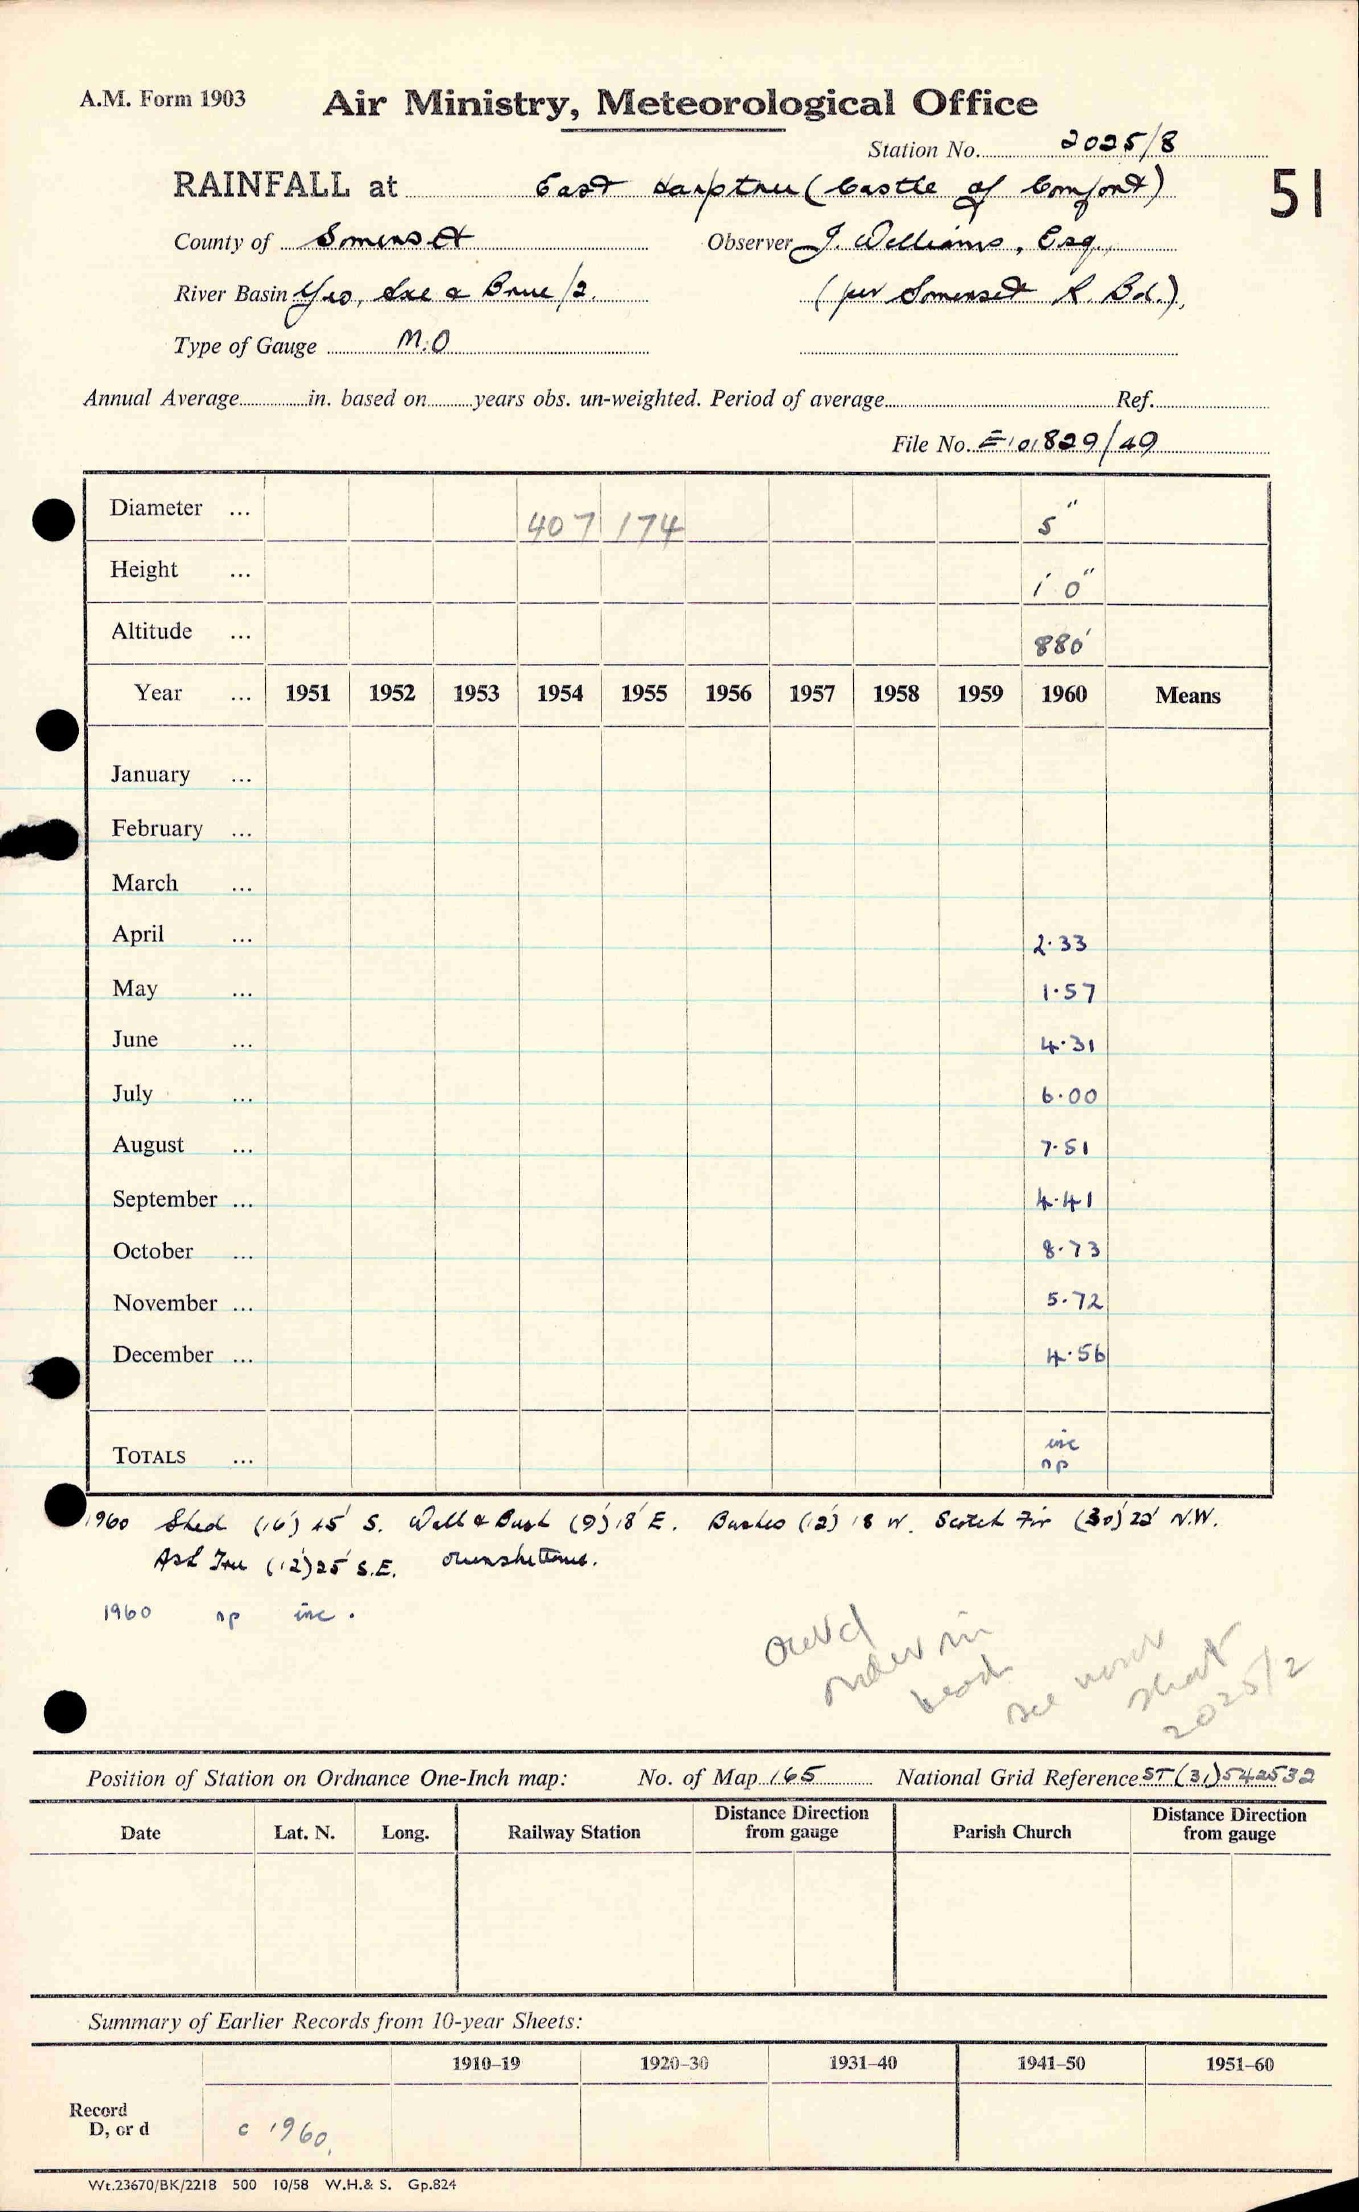 A.M. Form 1903
Air Ministry, Meteorological Office
Station No. 2025/8
RAINFALL at East Harptree (Castle of Comfort)
51
County of Somerset Observer J. Williams, Esq.,
River Basin Yeo, Axe & Brue/2. (per Somerset R. Bd.),
Type of Gauge M.O
Annual Average in. based on years obs. un-weighted. Period of average Ref.
File No. 829/49
Diameter ... 407 174 5"
Height ... 1' 0"
Altitude ... 880'
Year ... 1951 1952 1953 1954 1955 1956 1957 1958 1959 1960 Means
January ...
February ...
March ...
April ... 2.33
May ... 1.57
June ... 4.31
July ... 6.00
August ... 7.51
September ... 4.41
October ... 8.73
November ... 5.72
December ... 4.56
TOTALS ... inc
np
1960 Shed (16') 45' S. Wall & Bush (9') 18' E. Bushes (12') 18' W. Scotch Fir (30') 22' N.W.
Ash Tree (12') 25' S.E.
1960 np inc.
see
2025/2
Position of Station on Ordnance One-Inch map: No. of Map 165 National Grid Reference ST(31)542532
Date Lat. N. Long. Railway Station Distance Direction from gauge Parish Church Distance Direction from gauge
Summary of Earlier Records from 10-year Sheets:
1910-19 1920-30 1931-40 1941-50 1951-60
Record
D, or d c 1960.
Wt.23670/BK/2218 500 10/58 W.H.& S. Gp.824